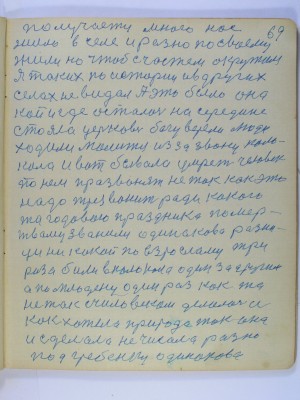 69
получаету много нас
жило в селе и разно по своему
жили но чтоб счастем окружон
Я таких по истории и в других
селах не видал А это было она
кой и где осталох на середине
стояла церковь богу верели люди
ходили молитца из за звону коло-
кола И вот бывало умрет человек
по нем празвонят не так как это
надо тризвонит ради какого
та годовова праздника по мер-
твому званили одинакова разни-
ци ни какой по взрослому три
раза били в колокол один за другим
а по молодну один раз как та
не так с человеком делалос и
как хотела природа так она
и сделала не чисала разно
под гребенку одинакова